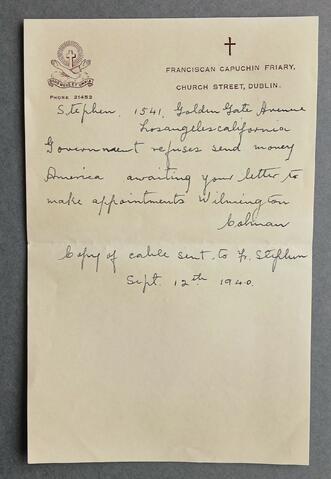 FRANCISCAN CAPUCHIN FRIARY,
CHURCH STREET, DUBLIN.
PHONE 21452
Stephen, 1541, Golden Gate Avenue
Losangeles California
Government refuses send money
America awaiting your letter to
make appointments Wilmington
Colman
Copy of cable sent to Fr. Stephen
Sept. 12th 1940.